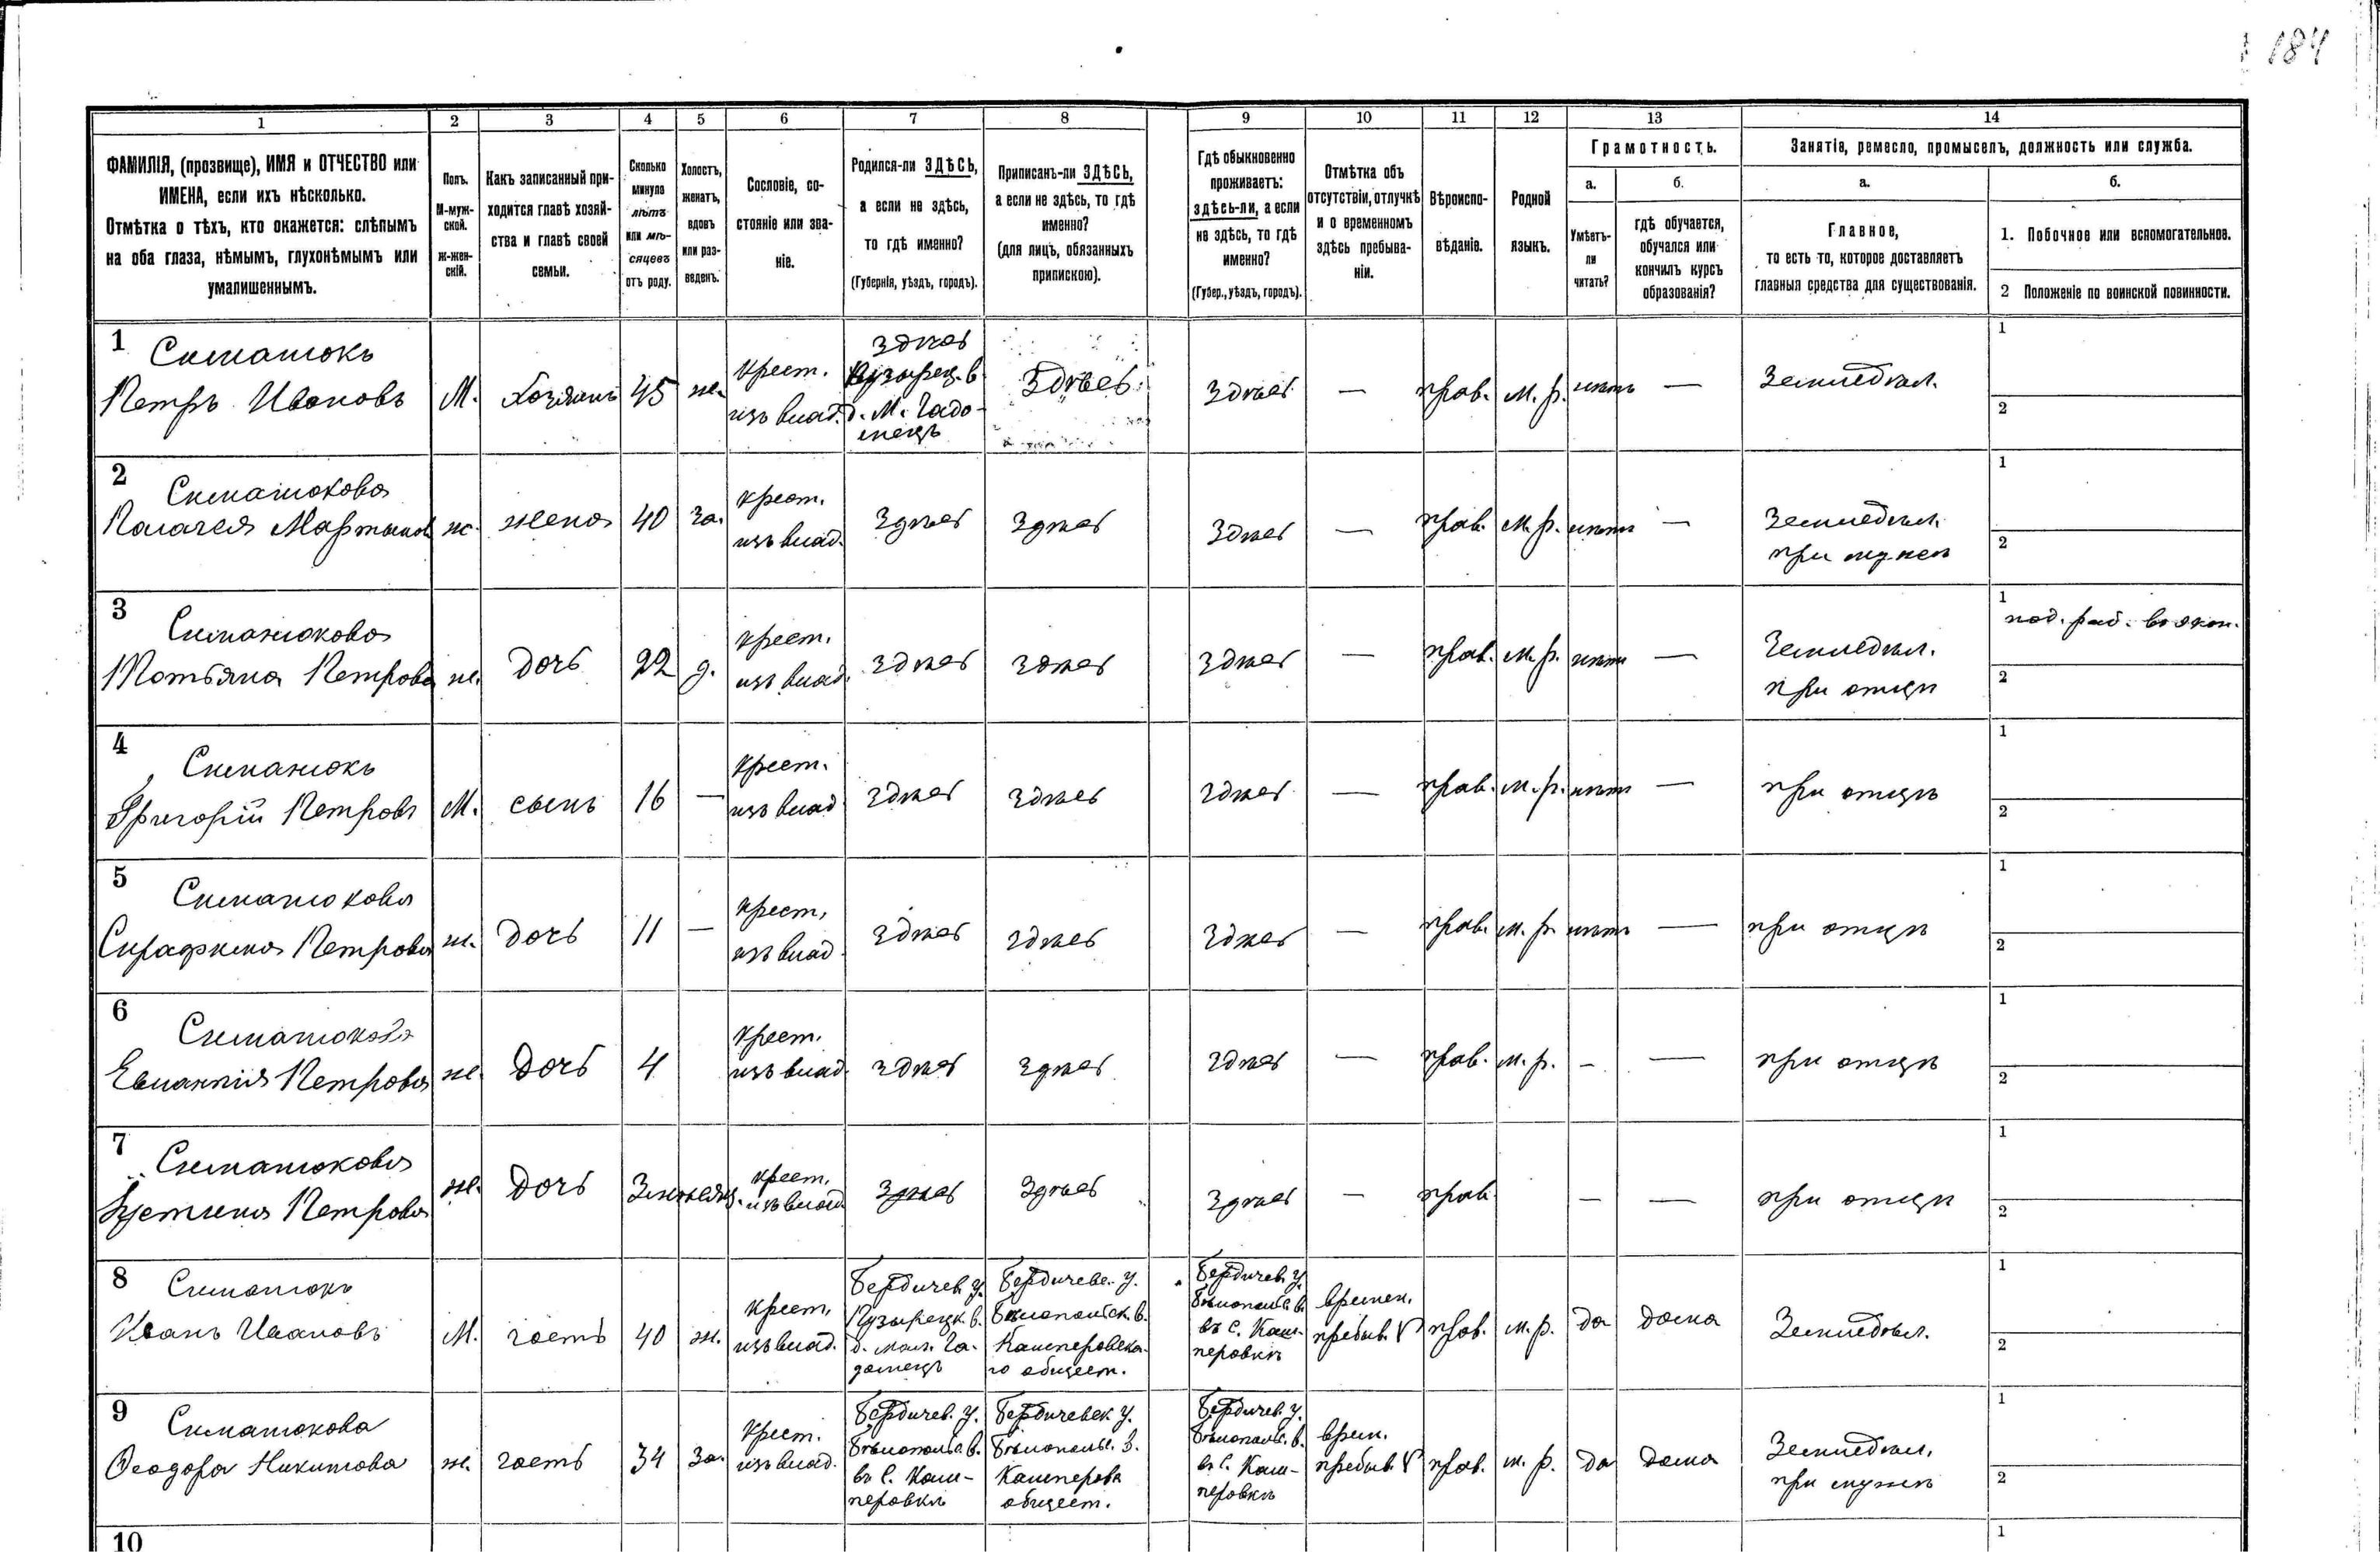 184
1 2 3 4 5 6 7 8 9 10 11 12 13 14
ФАМИЛІЯ, (прозвище), ИМЯ и ОТЧЕСТВО или
ИМЕНА, если ихъ нѣсколько.
Отмѣтка о тѣхъ, кто окажется: слѣпымъ
на оба глаза, нѣмымъ, глухонѣмымъ или
умалишеннымъ.
Полъ.
М-муж-
ской.
Ж-жен-
скій.
Какъ записанный при-
ходится главѣ хозяй-
ства и главѣ своей
семьи.
Сколько
минуло
лѣтъ
или мѣ-
сяцевъ
отъ роду.
Холостъ,
женатъ,
вдовъ
или раз-
веденъ.
Сословіе, со-
стояніе или зва-
ніе.
Родился-ли ЗДѢСЬ,
а если не здѣсь,
то гдѣ именно?
(Губернія, уѣздъ, городъ).
Приписанъ-ли ЗДѢСЬ,
а если не здѣсь, то гдѣ
именно?
(для лицъ, обязанныхъ
припискою).
Гдѣ обыкновенно
проживаетъ:
здѣсь-ли, а если
не здѣсь, то гдѣ
именно?
(Губер., уѣздъ, городъ).
Отмѣтка объ
отсутствіи, отлучкѣ
и о временномъ
здѣсь пребыва-
ніи.
Вѣроиспо-
вѣданіе.
Родной
языкъ.
Грамотность.
а.
Умѣетъ-
ли
читать?
б.
гдѣ обучается,
обучался или
кончилъ курсъ
образованія?
Занятіе, ремесло, промыселъ, должность или служба.
а.
Главное,
то есть то, которое доставляетъ
главныя средства для существованія.
б.
1. Побочное или вспомогательное.
2 Положеніе по воинской повинности.
1
Петръ Ивановъ
М.
Хозяинъ
45
ж.
крест.
изъ влад.
здѣсь
д. М. Гадо-
мецъ
Здѣсь
Здѣсь
—
прав.
м. р.
нѣтъ
—
Земледѣл.
1
2
2
Пелагея Мартынов
ж.
жена
40
за.
крест.
изъ влад.
Здѣсь
Здѣсь
Здѣсь
—
прав.
м. р.
нѣтъ
—
Земледѣл.
при мужѣ
1
2
3
Татьяна Петрова
ж.
дочь
22
д.
крест.
изъ влад.
здѣсь
здѣсь
здѣсь
—
прав.
м. р.
нѣтъ
—
Земледѣл.
при отцѣ
1
под. раб. въ экон.
2
4
Григорій Петровъ
М.
сынъ
16
—
крест.
изъ влад
здѣсь
здѣсь
здѣсь
—
прав.
м. р.
нѣтъ
—
при отцѣ
1
2
5
Петрова
ж.
дочь
11
—
крест,
изъ влад
здѣсь
здѣсь
здѣсь
—
прав.
м. р.
нѣтъ
—
при отцѣ
1
2
6
Петрова
ж.
дочь
4
крест.
изъ влад.
здѣсь
здѣсь
здѣсь
—
прав.
м. р.
-
—
при отцѣ
1
2
7
Петрова
ж.
дочь
крест,
изъ влад
здѣсь
здѣсь
здѣсь
—
прав
—
—
при отцѣ
1
2
8
Иванъ Ивановъ
М.
гость
40
ж.
крест,
изъ влад.
Бердичев. у.
Пузырецк. в.
д. Мал. Га-
домецъ
Бердичев. у.
Бѣлопольск. в.
Кашперовска-
го общест.
Бердичев. у.
Бѣлопольс. в.
въ с. Каш-
перовкѣ
времен.
пребыв. V
прав.
м. р.
да
дома
Земледѣл.
1
2
9
Ѳеодора Никитова
ж.
гость
34
за.
крест.
изъ влад.
Бердичев. у.
Бѣлопольс. в.
въ с. Каш-
перовкѣ
Бердичевск у.
Бѣлопольс. в.
Кашперовс
общест.
Бердичев. у.
Бѣлопольс. в.
въ с. Каш-
перовкѣ
врем.
пребыв. V
прав.
м. р.
да
дома
Земледѣл.
при мужѣ
1
2
10
1